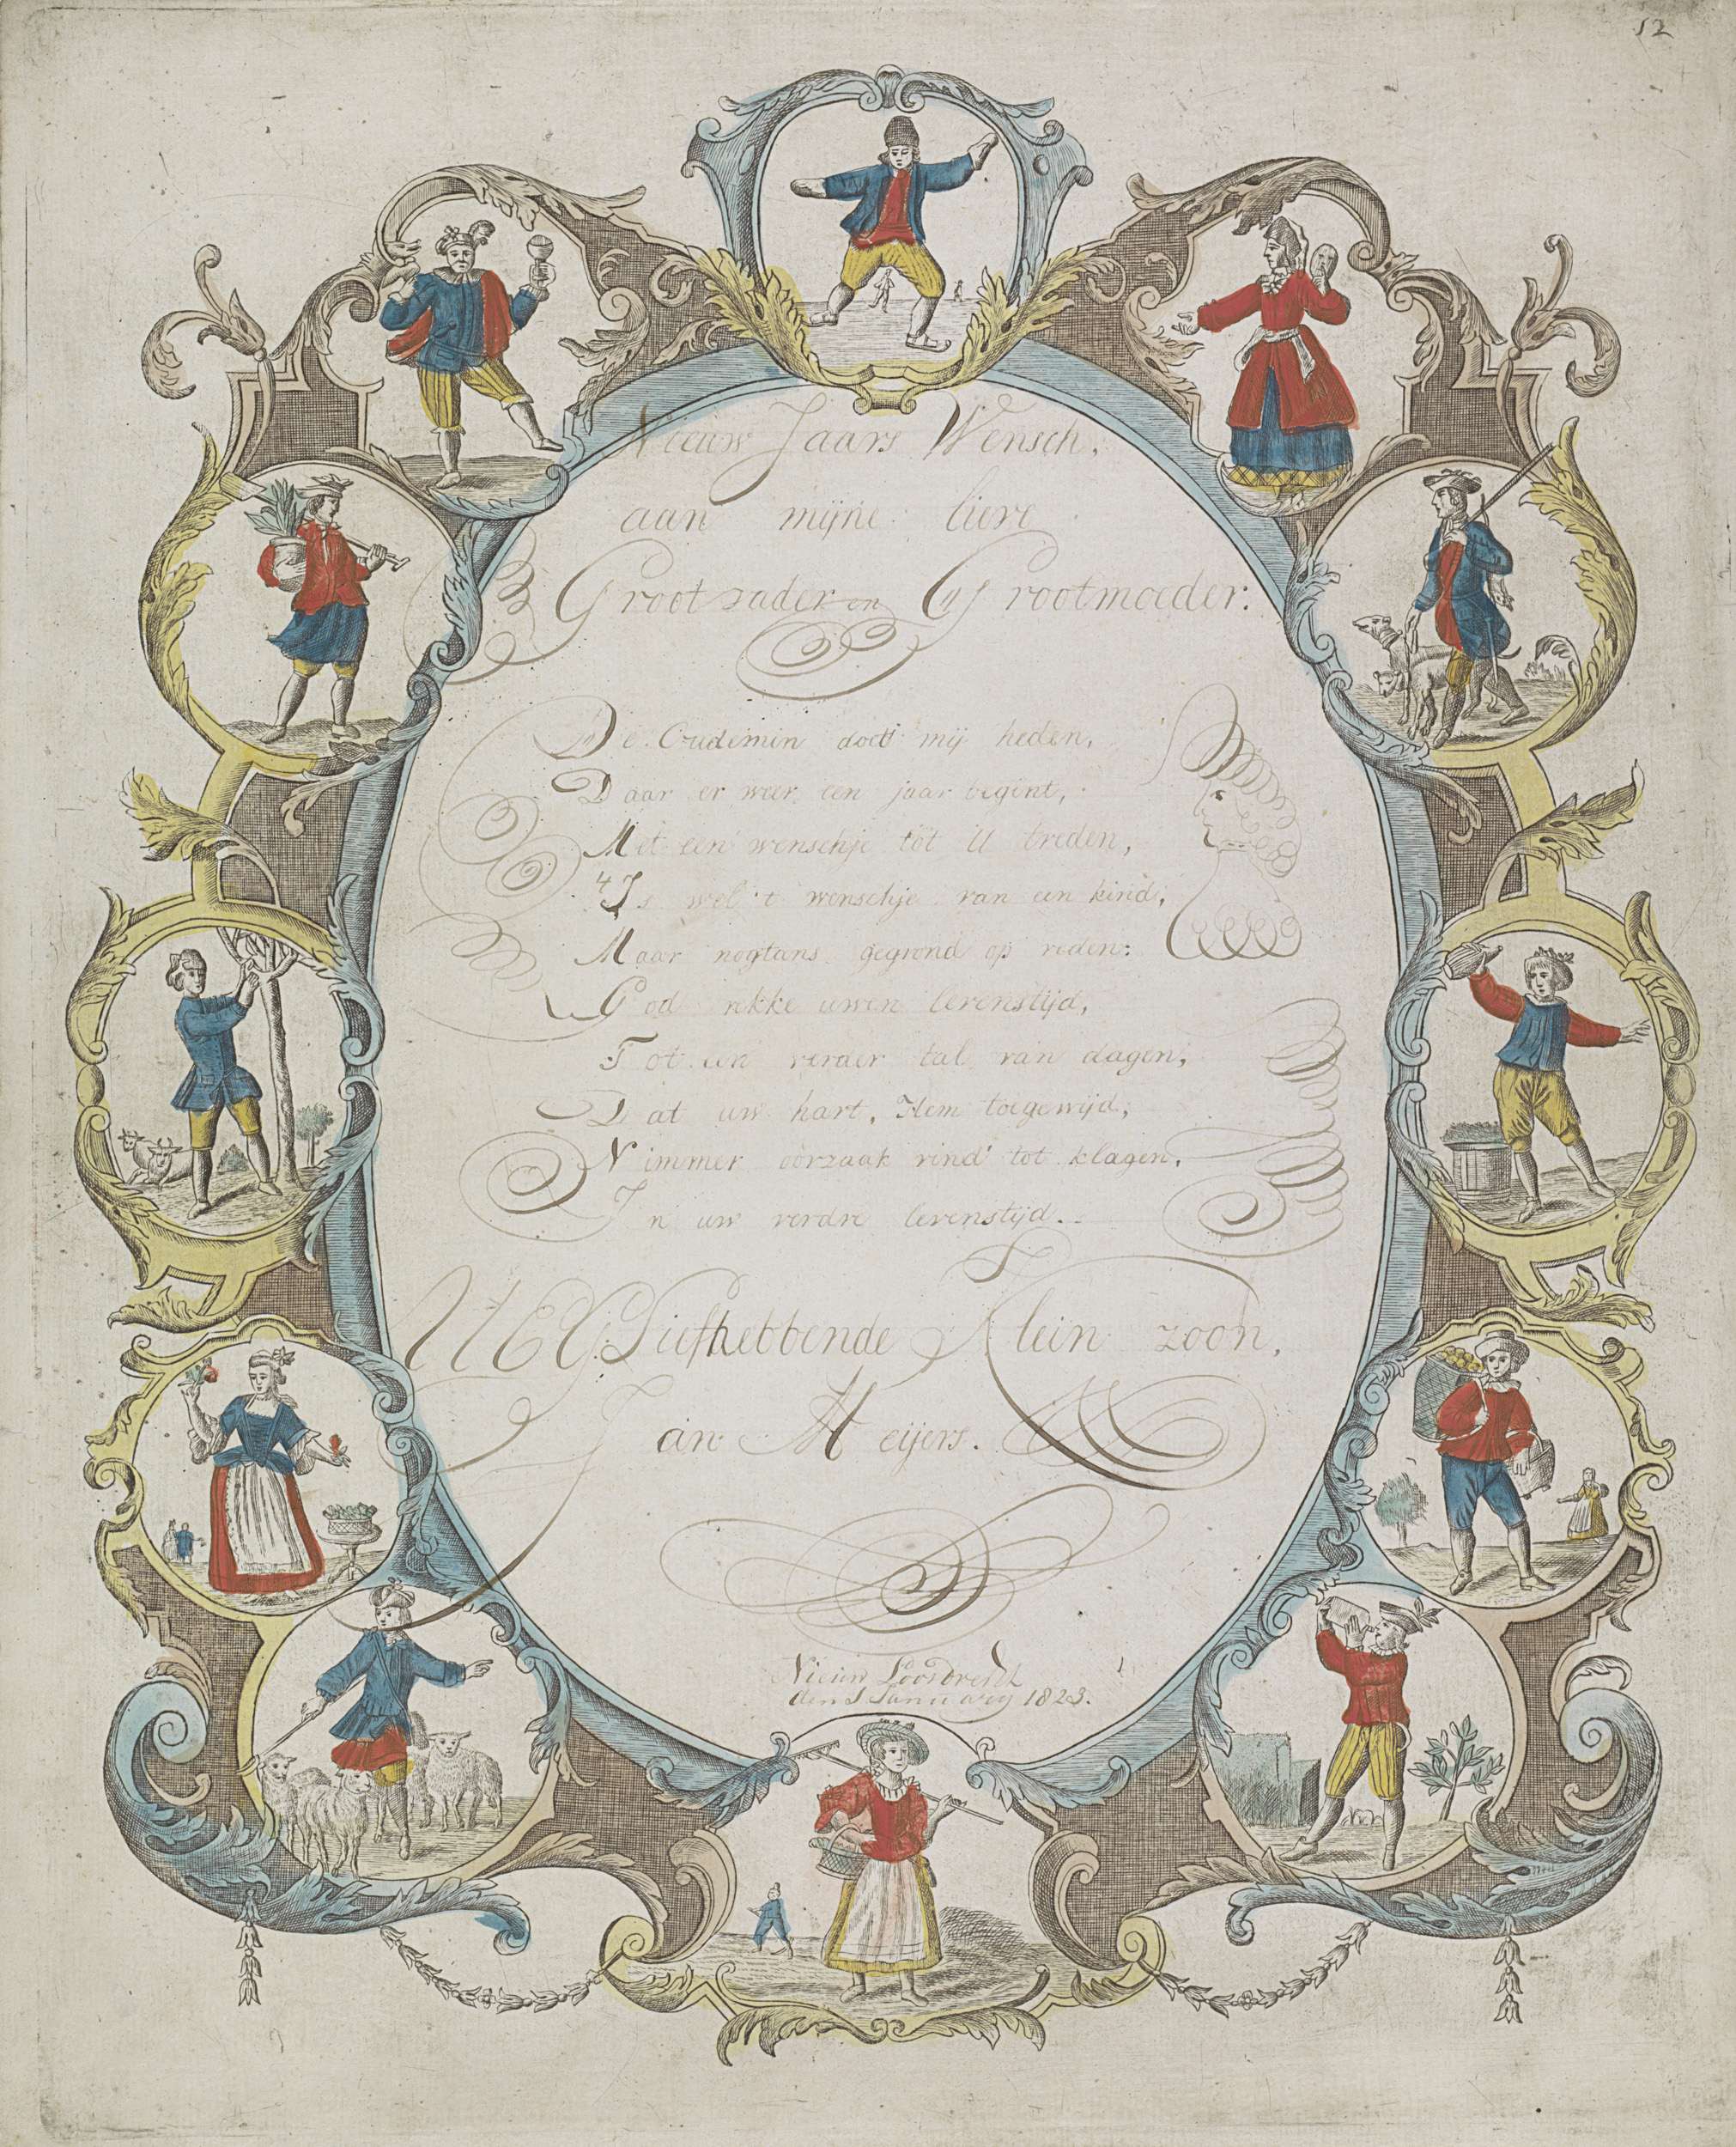 52
Nieuw Jaars Wensch,
aan mijne lieve
Grootvader en Grootmoeder:
De Oudemin doet mij heden,
Daar er weer een jaar begint,
Met een wenschje tot U treden,
't Is wel 't wenschje van een kind;
Maar nogtans gegrond op reden:
God rekke uwen levenstijd,
Tot een verder tal van dagen;
Dat uw hart, Hem toegewijd,
Nimmer oorzaak vind' tot klagen,
In uw verdre levenstijd.
UEG Liefhebbende Klein zoon,
Jan Meijers.
Nieuw Loosdrecht
den 1 January 1823.